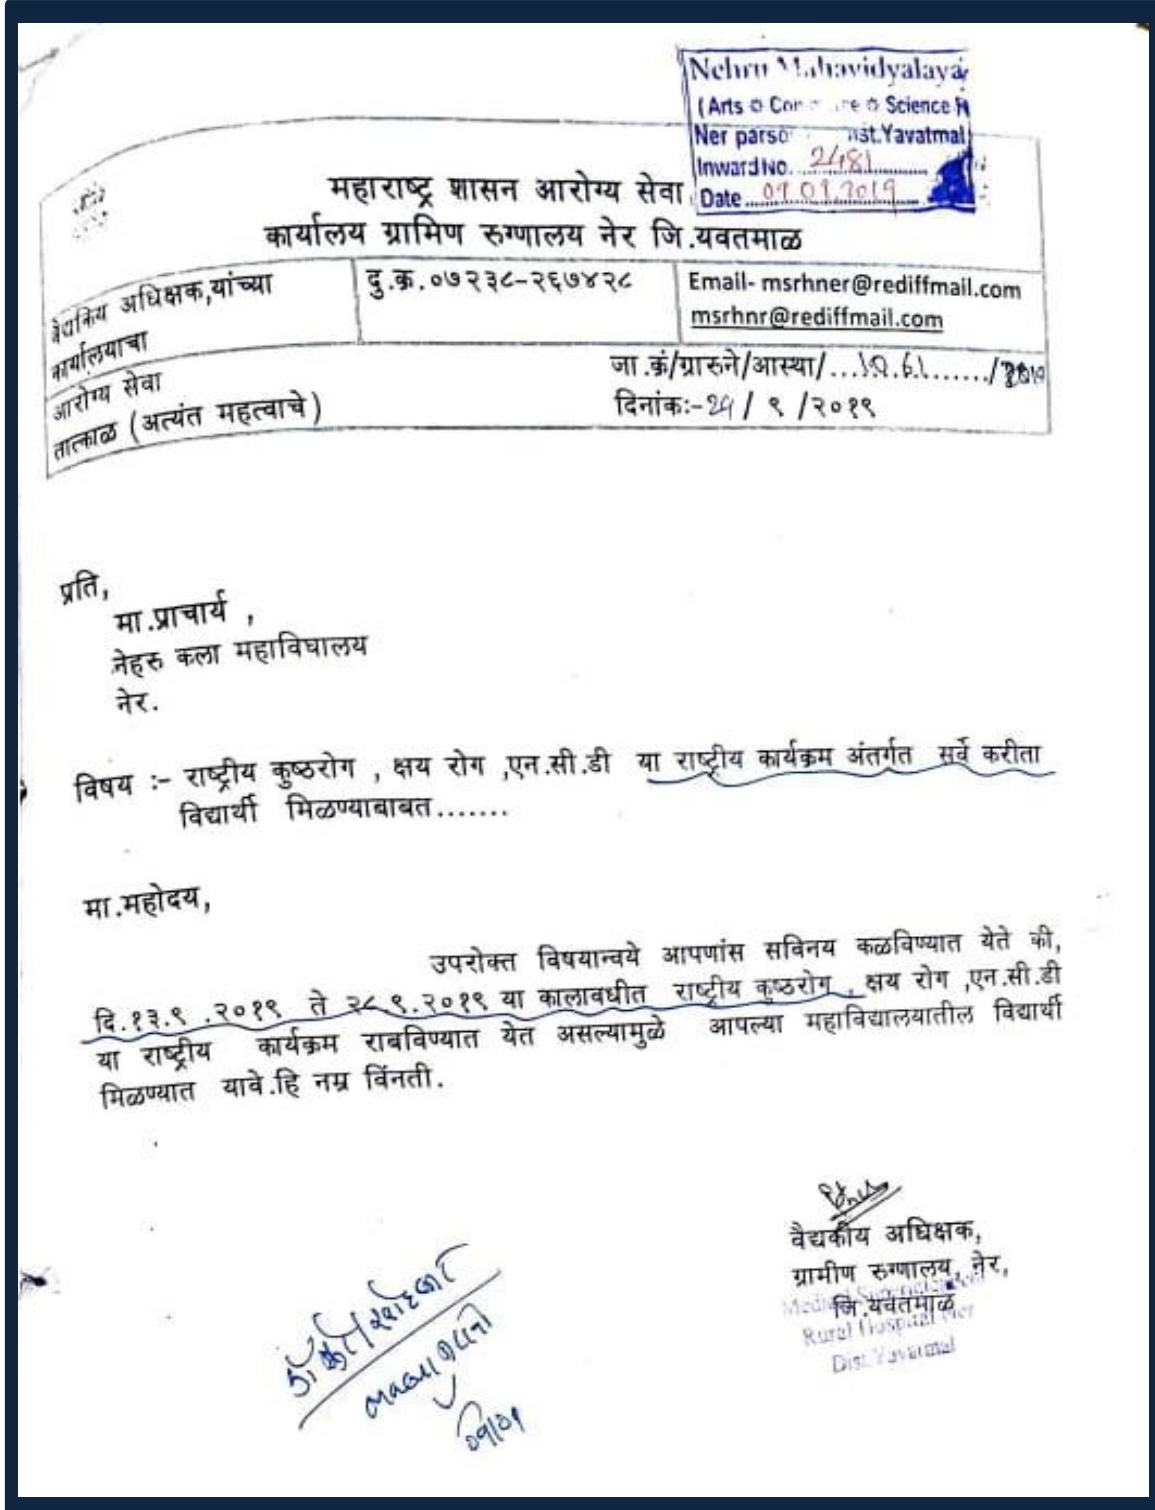 Nehru Mahavidyalaya
(Arts Commerce Science
Ner parso Dist.Yavatmal
Inward No. 2481
Date
महाराष्ट्र शासन आरोग्य सेवा
कार्यालय ग्रामिण रुग्णालय नेर जि.यवतमाळ
वैद्यकिय अधिक्षक,यांच्या
कार्यालयाचा
दु.क्र.०७२३८-२६७४२८
Email- msrhner@rediffmail.com
msrhnr@rediffmail.com
आरोग्य सेवा
तात्काळ (अत्यंत महत्वाचे)
जा.क्रं/ग्रारुने/आस्था/
दिनांक:- / ९ /२०१९
प्रति,
मा.प्राचार्य ,
नेहरु कला महाविघालय
नेर.
विषय :- राष्ट्रीय कुष्ठरोग , क्षय रोग ,एन.सी.डी या राष्ट्रीय कार्यक्रम अंतर्गत सर्वे करीता
विद्यार्थी मिळण्याबाबत.......
मा.महोदय,
उपरोक्त विषयान्वये आपणांस सविनय कळविण्यात येते की,
दि.१३.९ .२०१९ ते २८.९.२०१९ या कालावधीत राष्ट्रीय कुष्ठरोग , क्षय रोग ,एन.सी.डी
या राष्ट्रीय कार्यक्रम राबविण्यात येत असल्यामुळे आपल्या महाविद्यालयातील विद्यार्थी
मिळण्यात यावे.हि नम्र विंनती.
वैद्यकीय अधिक्षक,
ग्रामीण रुग्णालय, नेर,
जि.यवतमाळ
Medical Superintendent
Rural Hospital Ner
Dist. Yavatmal